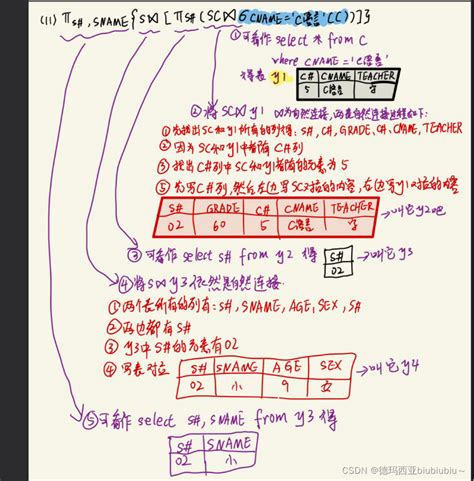 (11) π s#,SNAME{S⋈[πs#(SC⋈δCNAME='C语言'(C))]}
①可看作select * from C
where CNAME='C语言'
得表 y1
C# CNAME TEACHER
5 C语言
②将SC⋈y1 ⋈为自然连接,
①先找出SC和y1所有的列得: S#, C#, GRADE, C#, CNAME, TEACHER
②因为SC和y1中皆有C#列
③找出C#列中SC和y1皆有的元素为5
⑤先写C#列,然后左边写SC对应的内容,右边写y1对应的内容
S# GRADE C# CNAME TEACHER
02 60 5 C语言
→叫它y2吧
③可看作select s# from y2 得
S#
02
→叫它y3
④将S⋈y3依然是自然连接.
①两个表所有的列有: S#, SNAME, AGE, SEX, S#
②两边都有S#
③y3中S#的元素有02
④写表对应
S# SNAME AGE SEX
02 小 9 女
→叫它y4
⑤可看作select s#, SNAME from y3 得
S# SNAME
02 小
CSDN @德玛西亚biubiubiu~